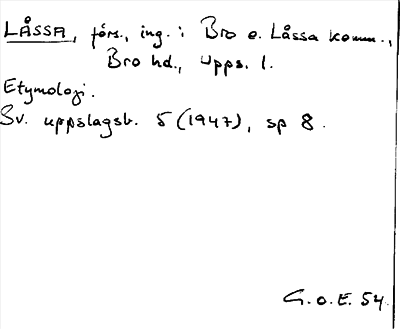 LÅSSA, förs., ing. i Bro o. Låssa komm.,
Bro hd., Upps. l.
Etymologi.
Sv. uppslagsb. 5 (1947), sp 8.
G.o.E. 54.